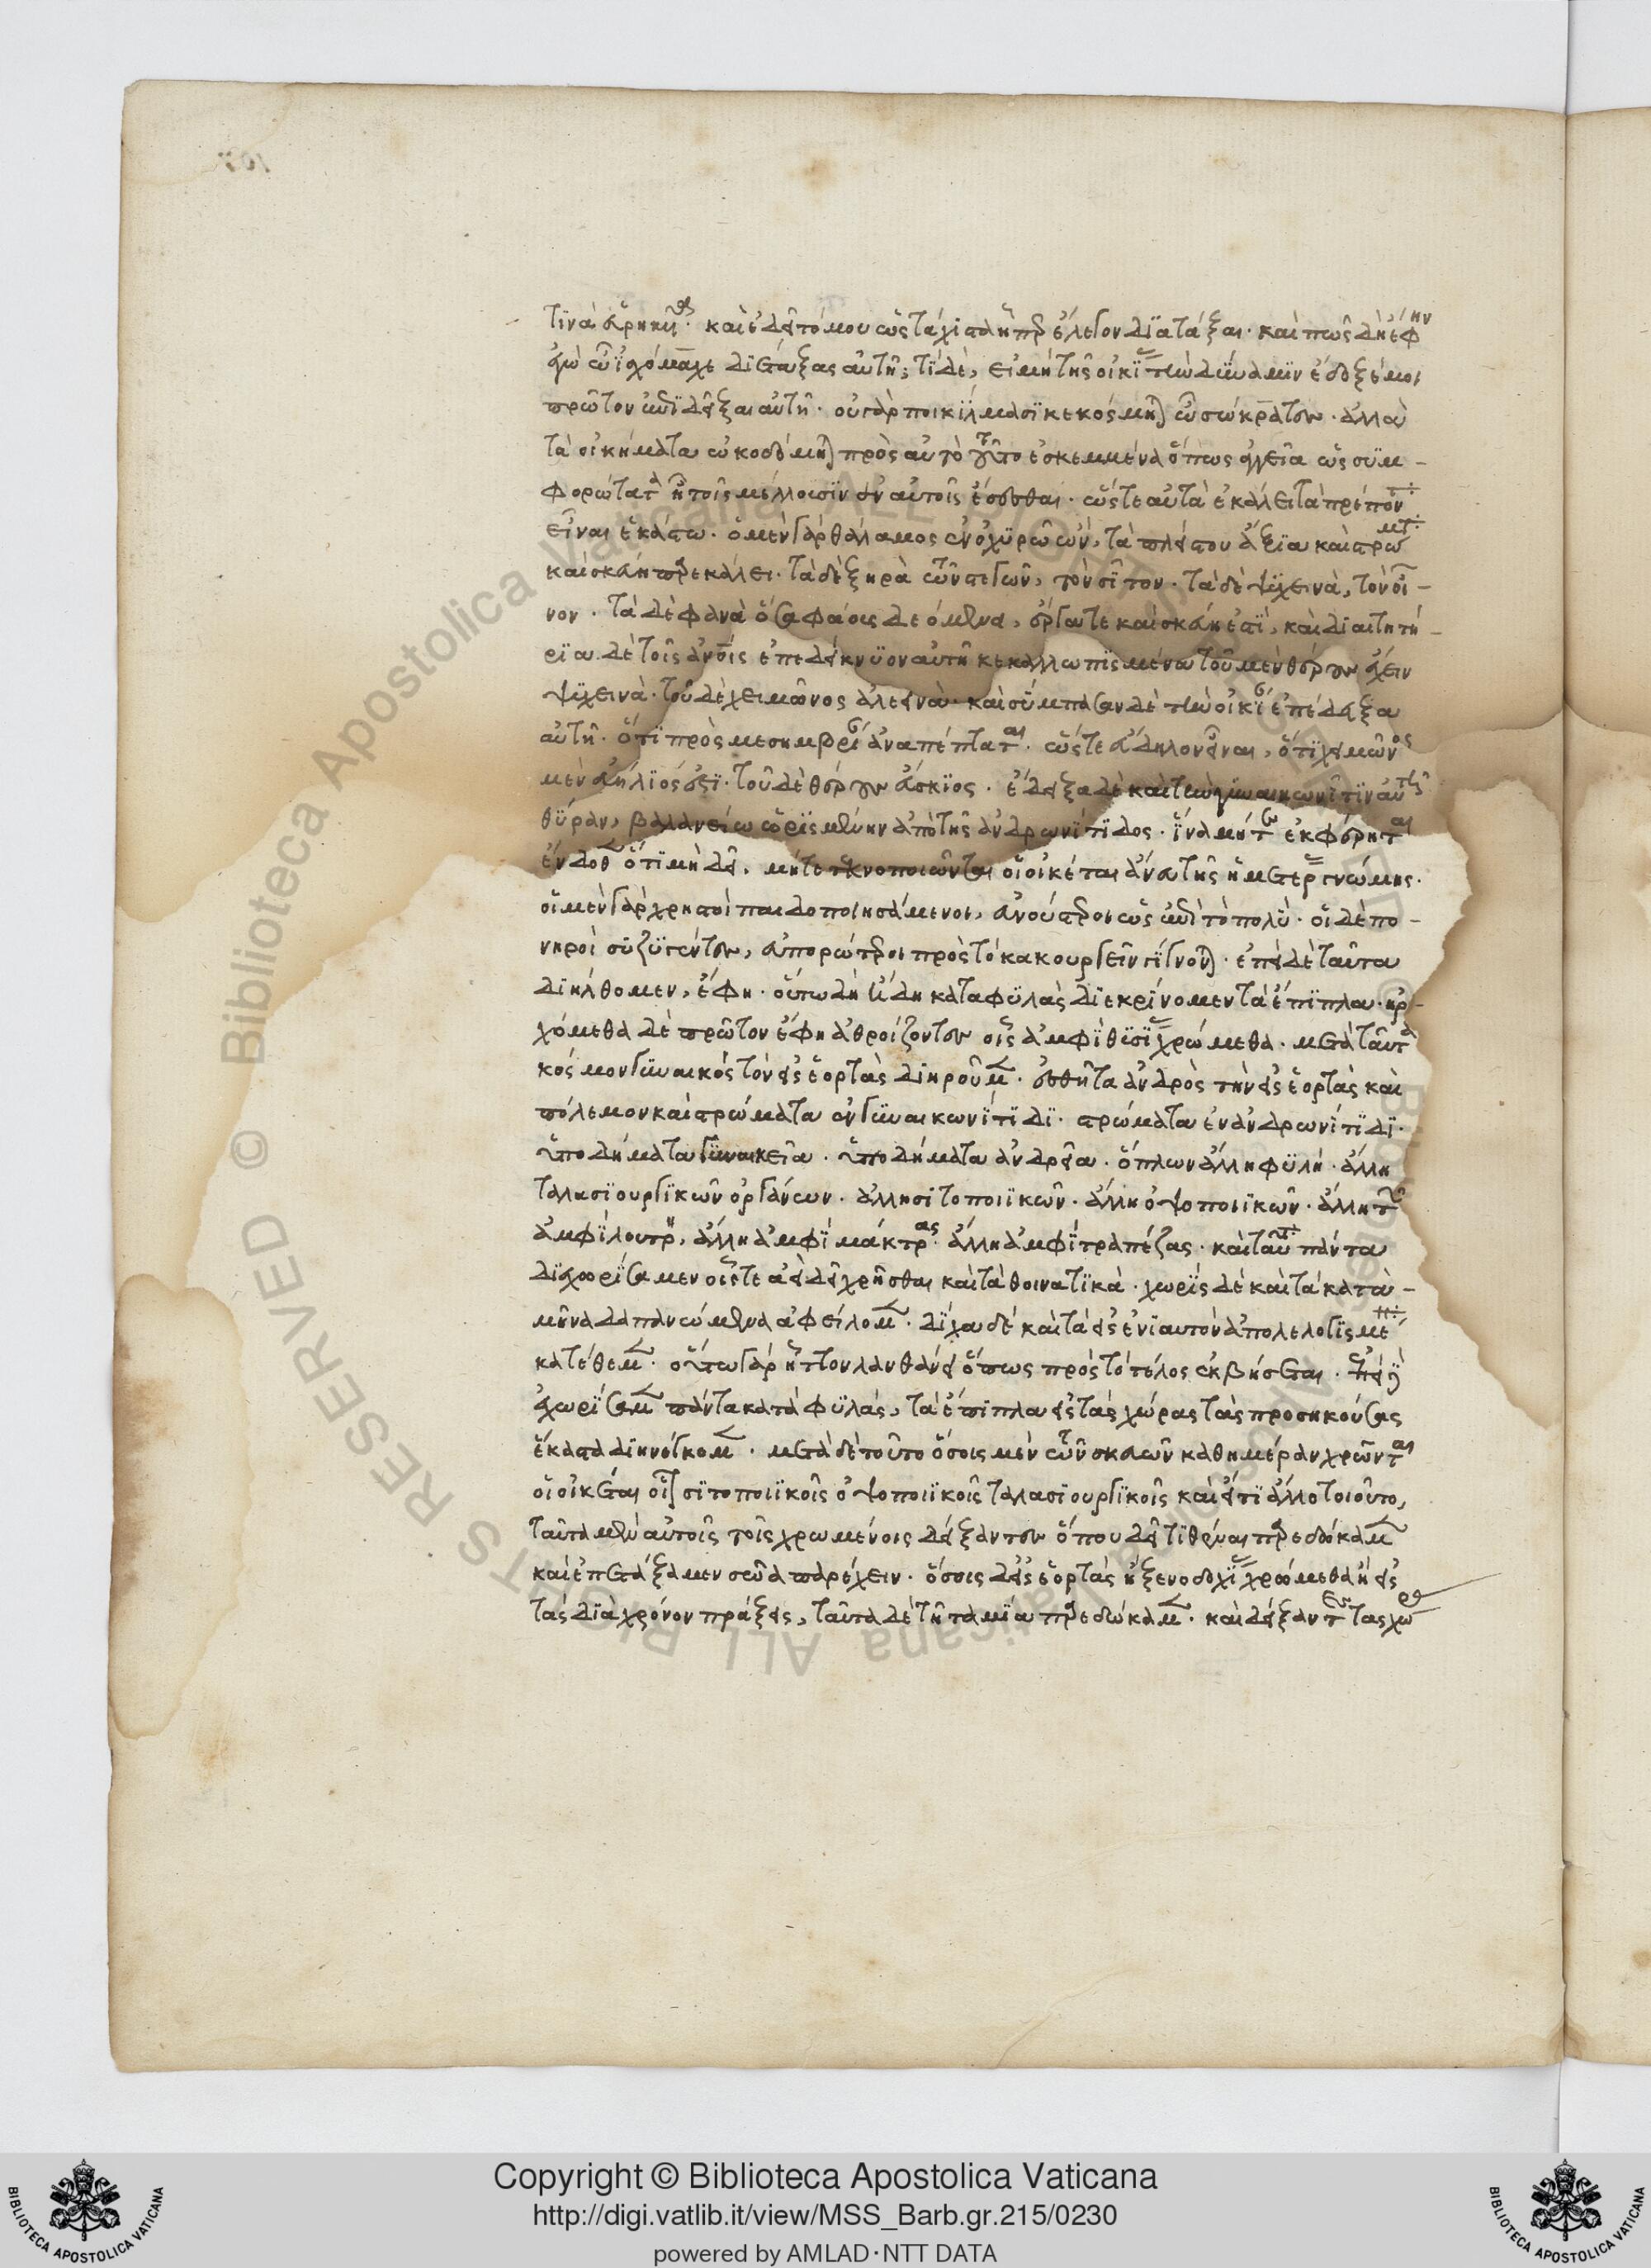 τινὰ εὑρηκυῖα. καὶ ἐδεῖτό μου ὡς τάχιστα ᾗπερ ἔλεγον διατάξαι. καὶ πῶς δὴ ἔφην
ἐγὼ ὦ ἰσχόμαχε διέταξας αὐτῇ; τί δὲ, εἰ μὴ τῆς οἰκίας τὴν δύναμιν ἔδοξέ μοι
πρῶτον ἐπιδεῖξαι αὐτῇ. οὐ γὰρ ποικίλμασι κεκόσμηται ὦ σώκρατες. ἀλλὰ
τὰ οἰκήματα ὠκοδόμηται πρὸς αὐτὸ τοῦτο ἐσκεμμένα ὅπως ἀγγεῖα ὡς συμ-
φορώτατα ᾖ τοῖς μέλλουσιν ἐν αὐτοῖς ἔσεσθαι. ὥστε αὐτὰ ἐκάλει τὰ πρέποντα
εἶναι ἑκάστω. ὁ μὲν γὰρ θάλαμος ἐν ὀχυρῶ ὢν, τὰ πλείστου ἄξια καὶ στρώματα
καὶ σκεύη παρεκάλει. τὰ δὲ ξηρὰ τῶν στεγῶν, τὸν σῖτον. τὰ δὲ ψυχεινὰ, τὸν οἶ-
νον. τὰ δὲ φανὰ ὅσα φάους δεόμενα, ἔργα τε καὶ σκεύη ἐστὶ, καὶ διαιτητή-
ρια δὲ τοῖς ἀνθρώποις ἐπεδείκνυον αὐτῇ κεκαλλωπισμένα τοῦ μὲν θέρους ἔχειν
ψυχεινὰ. τοῦ δὲ χειμῶνος ἀλεεινὰ. καὶ σύμπασαν δὲ τὴν οἰκίαν ἐπέδειξα
αὐτῇ. ὅτι πρὸς μεσημβρίαν ἀναπέπταται. ὥστε εὔδηλον εἶναι, ὅτι χειμῶνος
μὲν εὐήλιός ἐστι. τοῦ δὲ θέρους εὔσκιος. ἔδειξα δὲ καὶ τὴν γυναικωνῖτιν αὐτῇ
θύραν, βαλανείω ὡρισμένην ἀπὸ τῆς ἀνδρωνίτιδος. ἵνα μήτε ἐκφέρηται
ἔνδοθεν ὅτι μὴ δεῖ. μήτε τεκνοποιῶνται οἱ οἰκέται ἄνευ τῆς ἡμετέρας γνώμης.
οἱ μὲν γὰρ χρηστοὶ παιδοποιησάμενοι, εὐνούστεροι ὡς ἐπὶ τὸ πολὺ. οἱ δὲ πο-
νηροὶ συζυγέντες, εὐπορώτεροι πρὸς τὸ κακουργεῖν γίγνονται. ἐπεὶ δὲ ταῦτα
διήλθομεν, ἔφη. οὕτω δὴ ἤδη κατὰ φυλὰς διεκρίνομεν τὰ ἔπιπλα. ἠρ-
χόμεθα δὲ πρῶτον ἔφη ἀθροίζοντες οἷς ἀμφὶ θυσίας χρώμεθα. μετὰ ταῦτα
κόσμον γυναικὸς τὸν εἰς ἑορτὰς διῃροῦμεν. ἐσθῆτα ἀνδρὸς τὴν εἰς ἑορτὰς καὶ
πόλεμον καὶ στρώματα ἐν γυναικωνίτιδι. στρώματα ἐν ἀνδρωνίτιδι.
ὑποδήματα γυναικεῖα. ὑποδήματα ἀνδρεῖα. ὅπλων ἄλλη φυλὴ. ἄλλη
ταλασιουργικῶν ὀργάνων. ἄλλη σιτοποιικῶν. ἄλλη ὀψοποιικῶν. ἄλλη τῶν
ἀμφὶ λουτρὸν, ἄλλη ἀμφὶ μάκτρας. ἄλλη ἀμφὶ τραπέζας. καὶ ταῦτα πάντα
διχωρίσαμεν οἷς τε ἀεὶ δεῖ χρῆσθαι καὶ τὰ θοινατικὰ. χωρὶς δὲ καὶ τὰ κατὰ-
μῆνα δαπανώμενα ἀφείλομεν. δίχα δὲ καὶ τὰ εἰς ἐνιαυτὸν ἀπολελογισμένα
κατέθεμεν. οὕτω γὰρ ἧττον λανθάνει ὅπως πρὸς τὸ τέλος ἐκβήσεται. ἐπεὶ δὲ
ἐχωρίσαμεν πάντα κατὰ φυλὰς, τὰ ἔπιπλα εἰς τὰς χώρας τὰς προσηκούσας
ἕκαστα διηνέγκομεν. μετὰ δὲ τοῦτο ὅσοις μὲν τῶν σκευῶν καθ ημέραν χρῶνται
οἱ οἰκέται οἷον σιτοποιικοῖς ὀψοποιικοῖς ταλασιουργικοῖς καὶ εἴ τι ἄλλο τοιοῦτο,
ταῦτα μὲν αὐτοῖς τοῖς χρωμένοις δείξαντες ὅπου δεῖ τιθέναι παρεδώκαμεν
καὶ ἐπετάξαμεν σῶα παρέχειν. ὅσοις δ εἰς ἑορτὰς ἢ ξενοδοχίας χρώμεθα ἢ εἰς
τὰς διὰ χρόνου πράξεις, ταῦτα δὲ τῇ ταμία παρεδώκαμεν. καὶ δείξαντες τὰς χώρας
Copyright © Biblioteca Apostolica Vaticana
http://digi.vatlib.it/view/MSS_Barb.gr.215/0230
powered by AMLAD·NTT DATA